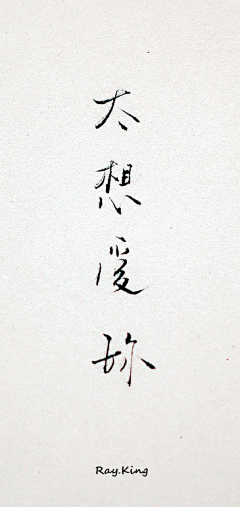 太想爱你
Ray.King